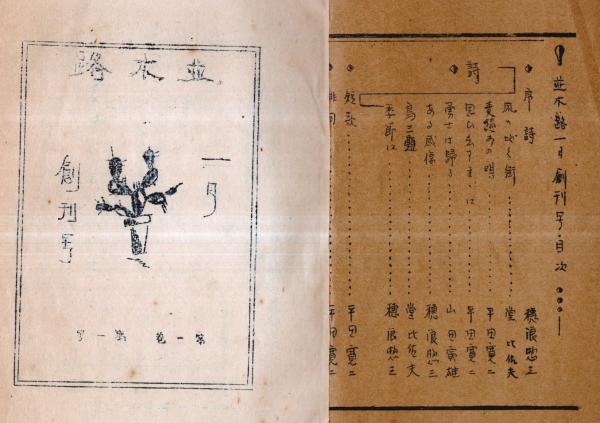 並木路
一月
創刊号
第一巻 第一号
並木路一月創刊号目次
序詩 穂浪惣三
詩
風の吹く街 堂比佐夫
平田寛二
思ひ出のまゝに 平田寛二
勇士は帰る 山田寅雄
ある感傷 穂浪惣三
堂比佐夫
季節に 穂浪惣三
短歌 平田寛二
俳句 平田寛二